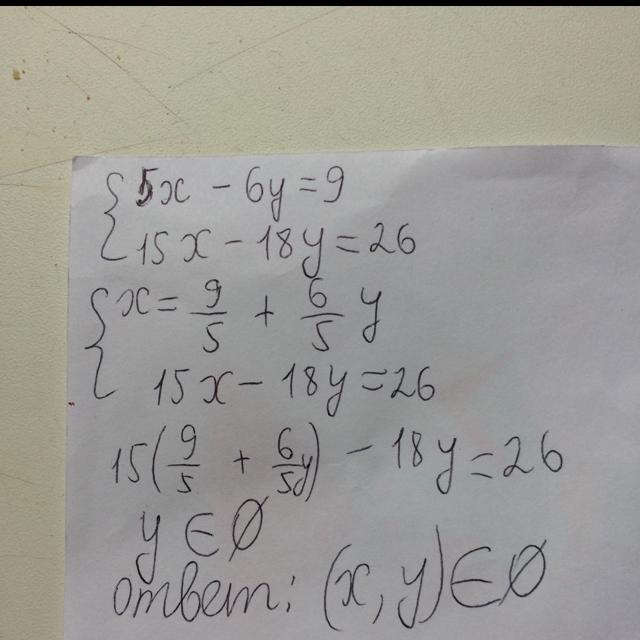 { 5x - 6y = 9
15x - 18y = 26
{ x = 9/5 + 6/5 y
15x - 18y = 26
15(9/5 + 6/5 y) - 18y = 26
y ∈ Ø
ответ: (x, y) ∈ Ø